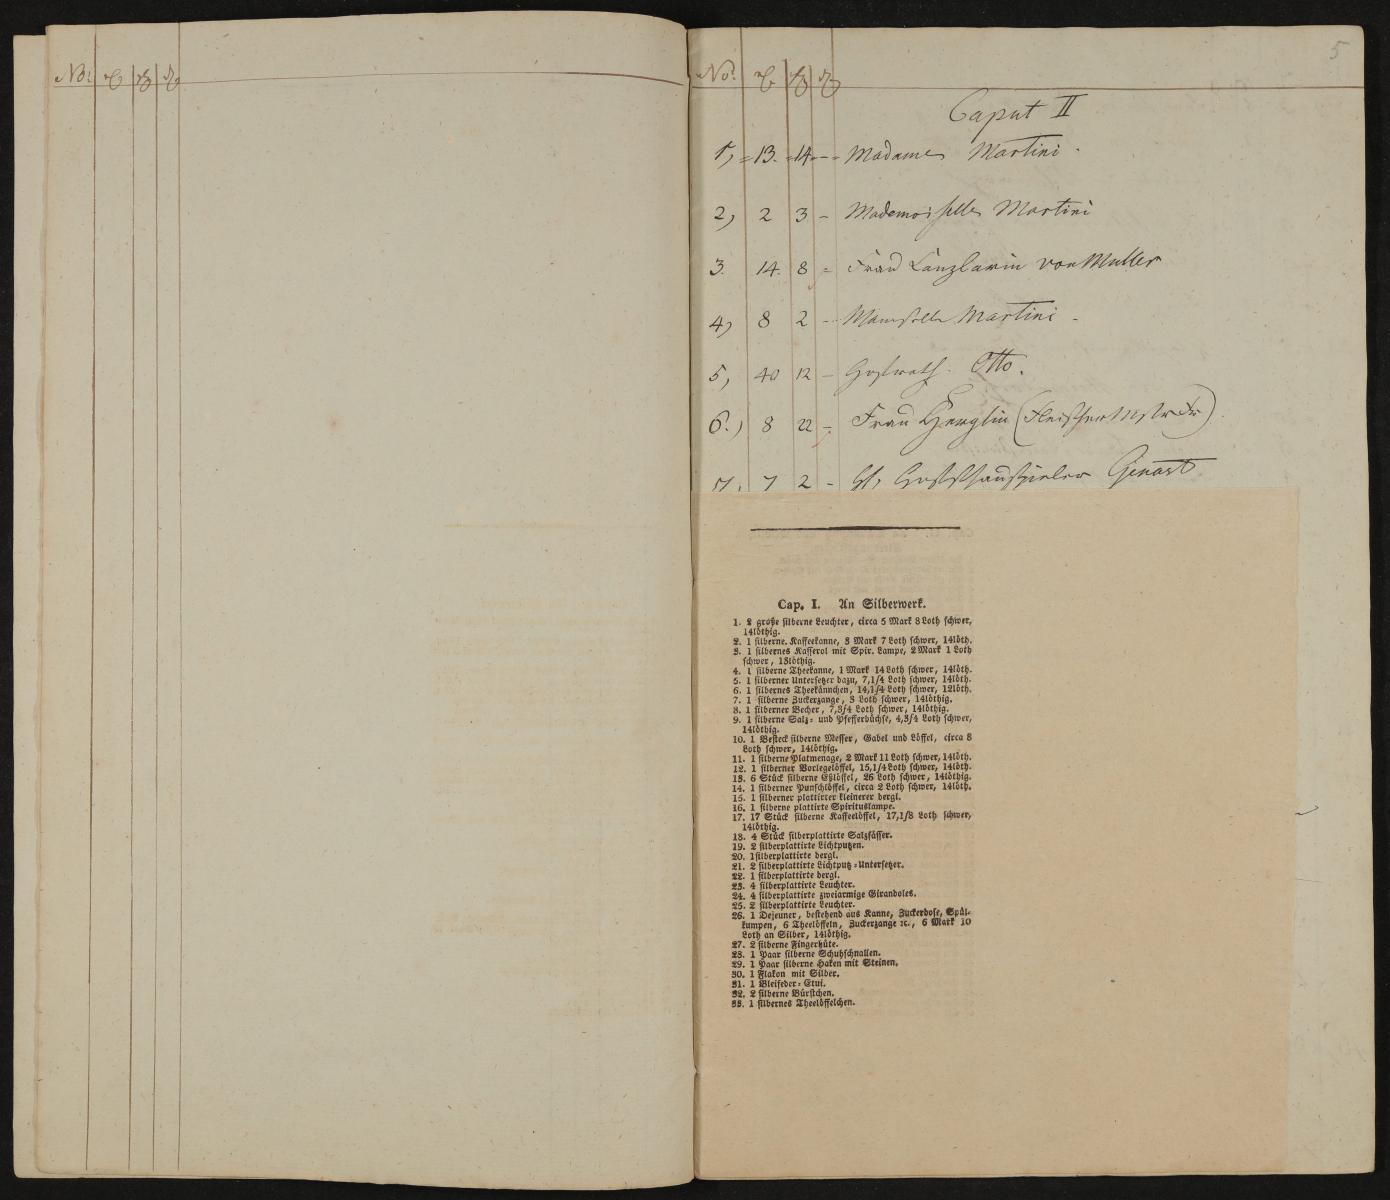 No.
No.
5
Caput II
1, 13. 14 - Madame Martini.
2, 2 3 - Mademoiselle Martini
3. 14. 8 - Frau Canzlarin von Müller
4, 8 2 - Mamselle Martini -
5, 40 12 - Hofrath. Otto.
6.) 8 22 - Frau
7, 7 2 - Hr. Hofschauspieler Genast
Cap. I. An Silberwerk.
1. 2 große silberne Leuchter, circa 5 Mark 8 Loth schwer,
14löthig.
2. 1 silberne Kaffeekanne, 3 Mark 7 Loth schwer, 14löth.
3. 1 silbernes Kasserol mit Spir. Lampe, 2 Mark 1 Loth
schwer, 13löthig.
4. 1 silberne Theekanne, 1 Mark 14 Loth schwer, 14löth.
5. 1 silberner Untersetzer dazu, 7,1/4 Loth schwer, 14löth.
6. 1 silbernes Theekännchen, 14,1/4 Loth schwer, 12löth.
7. 1 silberne Zuckerzange, 3 Loth schwer, 14löthig.
8. 1 silberner Becher, 7,3/4 Loth schwer, 14löthig.
9. 1 silberne Salz- und Pfefferbüchse, 4,3/4 Loth schwer,
14löthig.
10. 1 Besteck silberne Messer, Gabel und Löffel, circa 8
Loth schwer, 14löthig.
11. 1 silberne Platmenage, 2 Mark 11 Loth schwer, 14löth.
12. 1 silberner Vorlegelöffel, 15,1/4 Loth schwer, 14löth.
13. 6 Stück silberne Eßlöffel, 26 Loth schwer, 14löthig.
14. 1 silberner Punschlöffel, circa 2 Loth schwer, 14löth.
15. 1 silberner plattirter kleinerer dergl.
16. 1 silberne plattirte Spirituslampe.
17. 17 Stück silberne Kaffeelöffel, 17,1/8 Loth schwer,
14löthig.
18. 4 Stück silberplattirte Salzfässer.
19. 2 silberplattirte Lichtputzen.
20. 1silberplattirte dergl.
21. 2 silberplattirte Lichtputz-Untersetzer.
22. 1 silberplattirte dergl.
23. 4 silberplattirte Leuchter.
24. 4 silberplattirte zweiarmige Girandoles.
25. 2 silberplattirte Leuchter.
26. 1 Dejeuner, bestehend aus Kanne, Zuckerdose, Spül-
kumpen, 6 Theelöffeln, Zuckerzange ꝛc., 6 Mark 10
Loth an Silber, 14löthig.
27. 2 silberne Fingerhüte.
28. 1 Paar silberne Schuhschnallen.
29. 1 Paar silberne Haken mit Steinen.
30. 1 Flakon mit Silber.
31. 1 Bleifeder-Etui.
32. 2 silberne Bürstchen.
33. 1 silbernes Theelöffelchen.